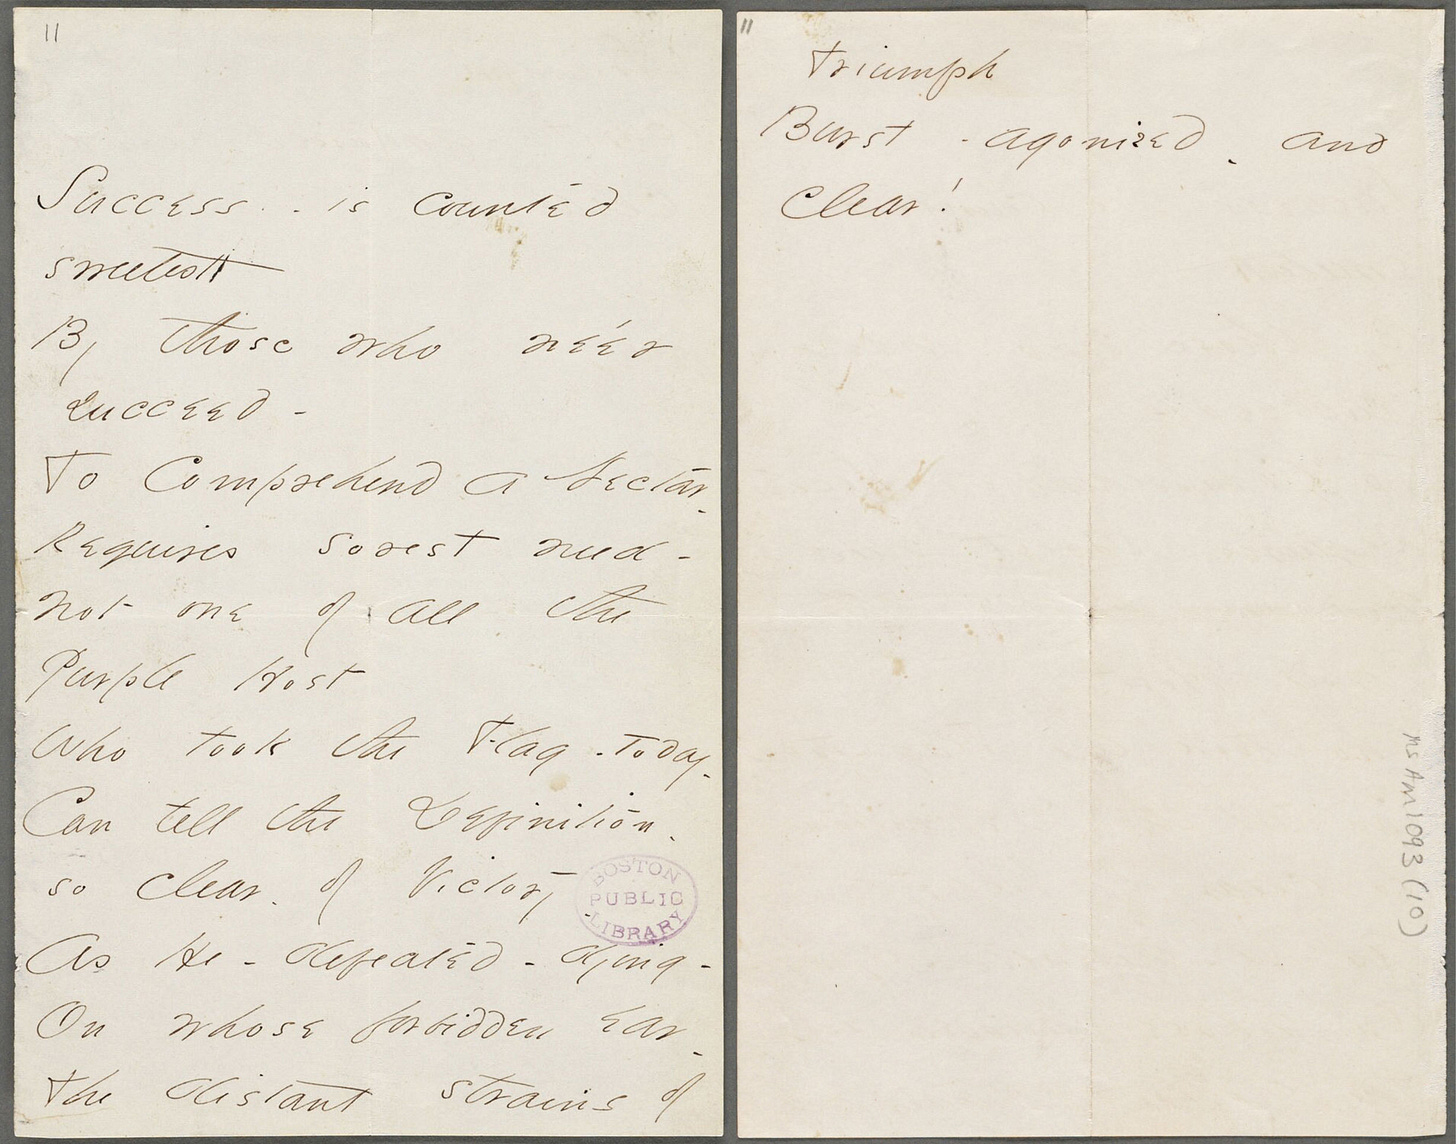 11
Success - is counted
sweetest
By those who ne'er
succeed -
To Comprehend a Nectar -
Requires sorest need -
Not one of all the
Purple Host
Who took the Flag - Today -
Can tell the Definition -
so clear - of Victory
BOSTON
PUBLIC
LIBRARY
As He - defeated - dying -
On whose forbidden ear -
The distant strains of
11
Triumph
Burst - agonized - and
Clear!
Ms Am 1093 (10)